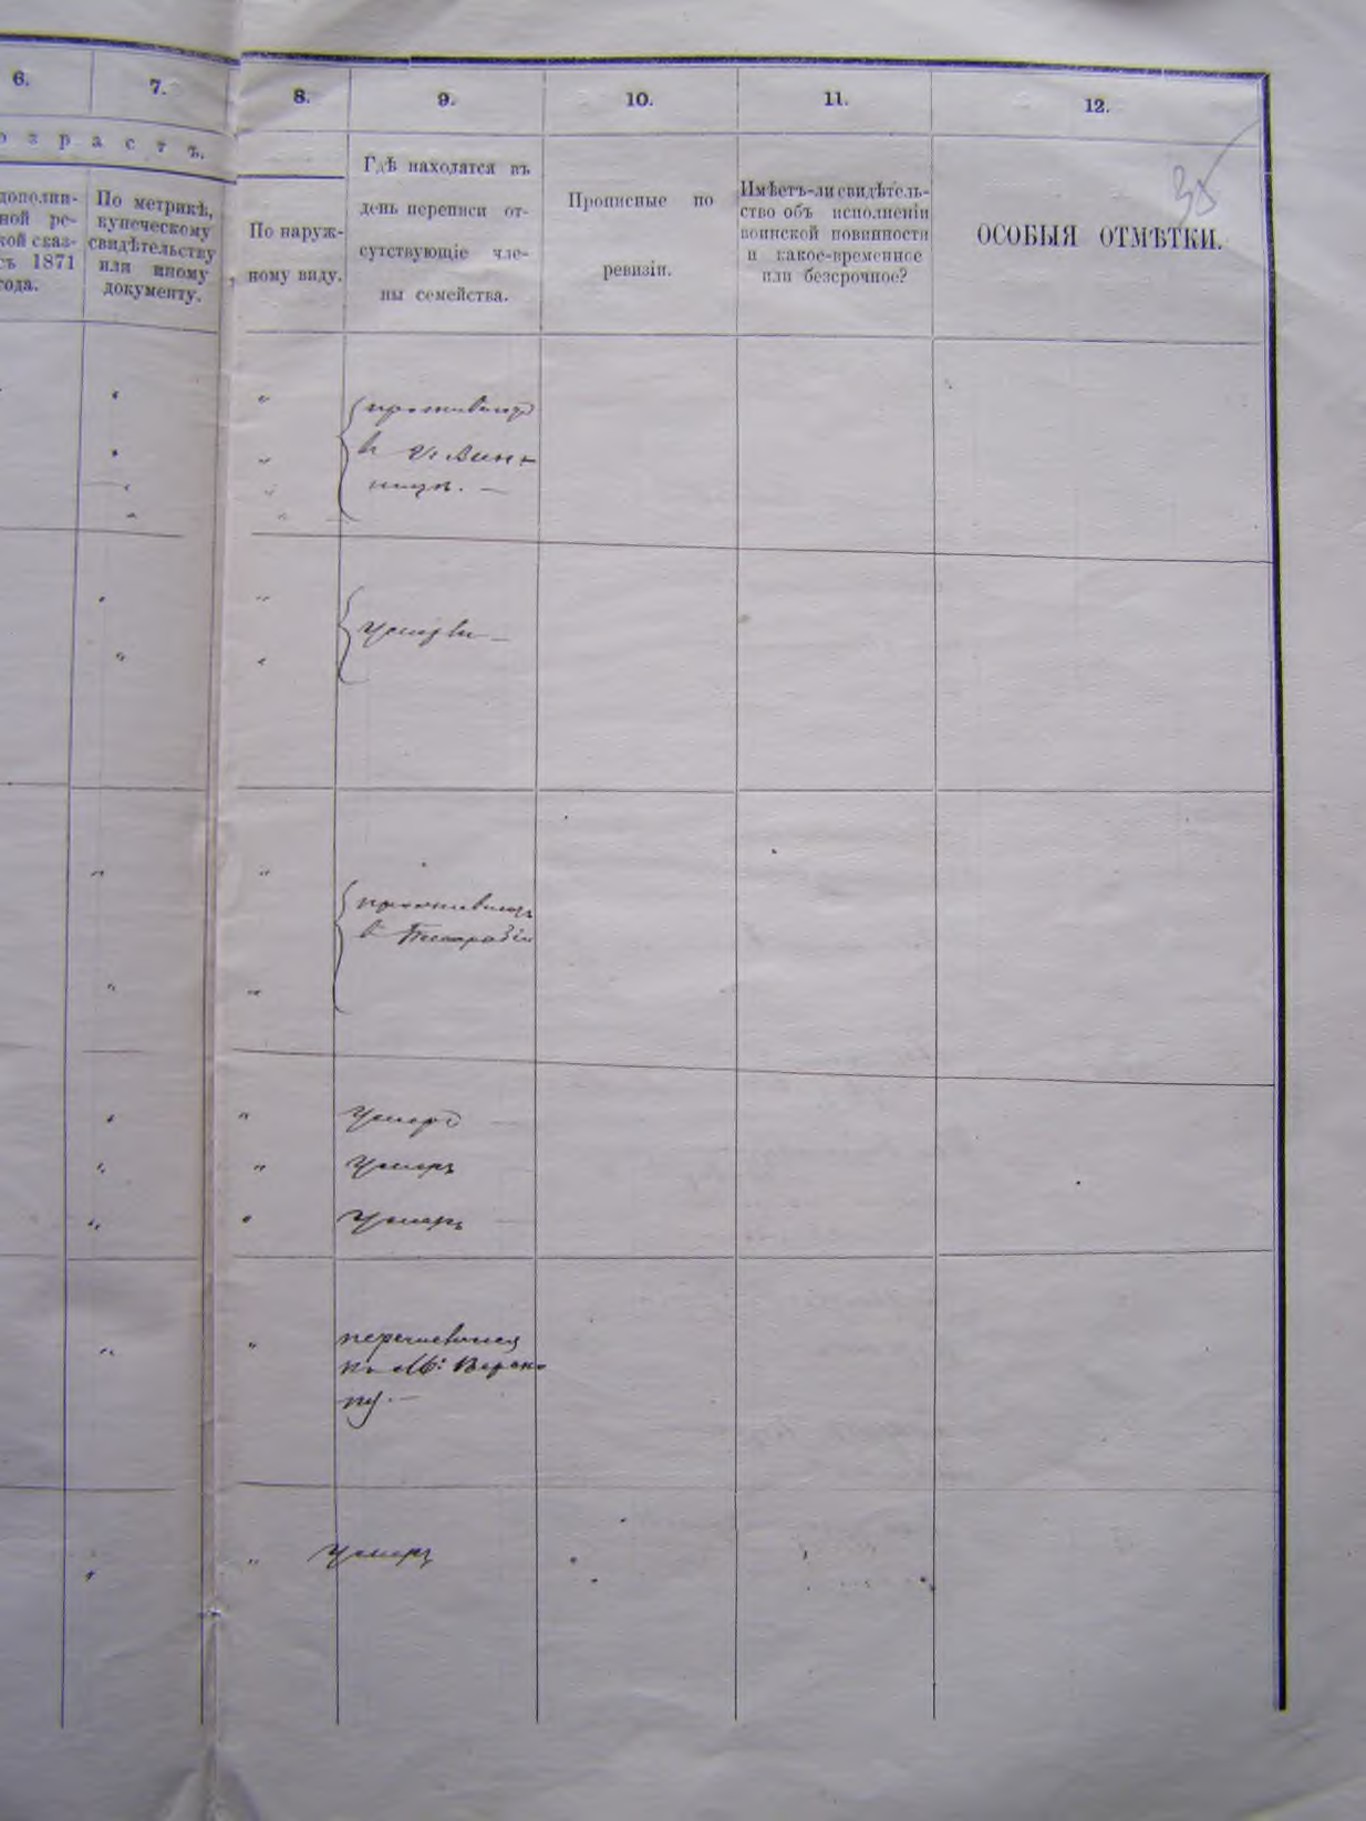 6.
7.
8.
9.
10.
11.
12.
озрастъ.
дополни-
ной ре-
кой сказ-
съ 1871
года.
По метрикѣ,
купеческому
свидѣтельству
или иному
документу.
По наруж-
ному виду.
Гдѣ находятся въ
день переписи от-
сутствующіе чле-
ны семейства.
Прописные по
ревизіи.
Имѣетъ-ли свидѣтель-
ство объ исполненіи
воинской повинности
и какое-временное
или безсрочное?
ОСОБЫЯ ОТМѢТКИ.
35
проживаютъ
в г. Вин-
ницѣ. —
умерли —
проживаютъ
в Бессарабіи
умеръ
умеръ
умеръ
къ М:
умеръ